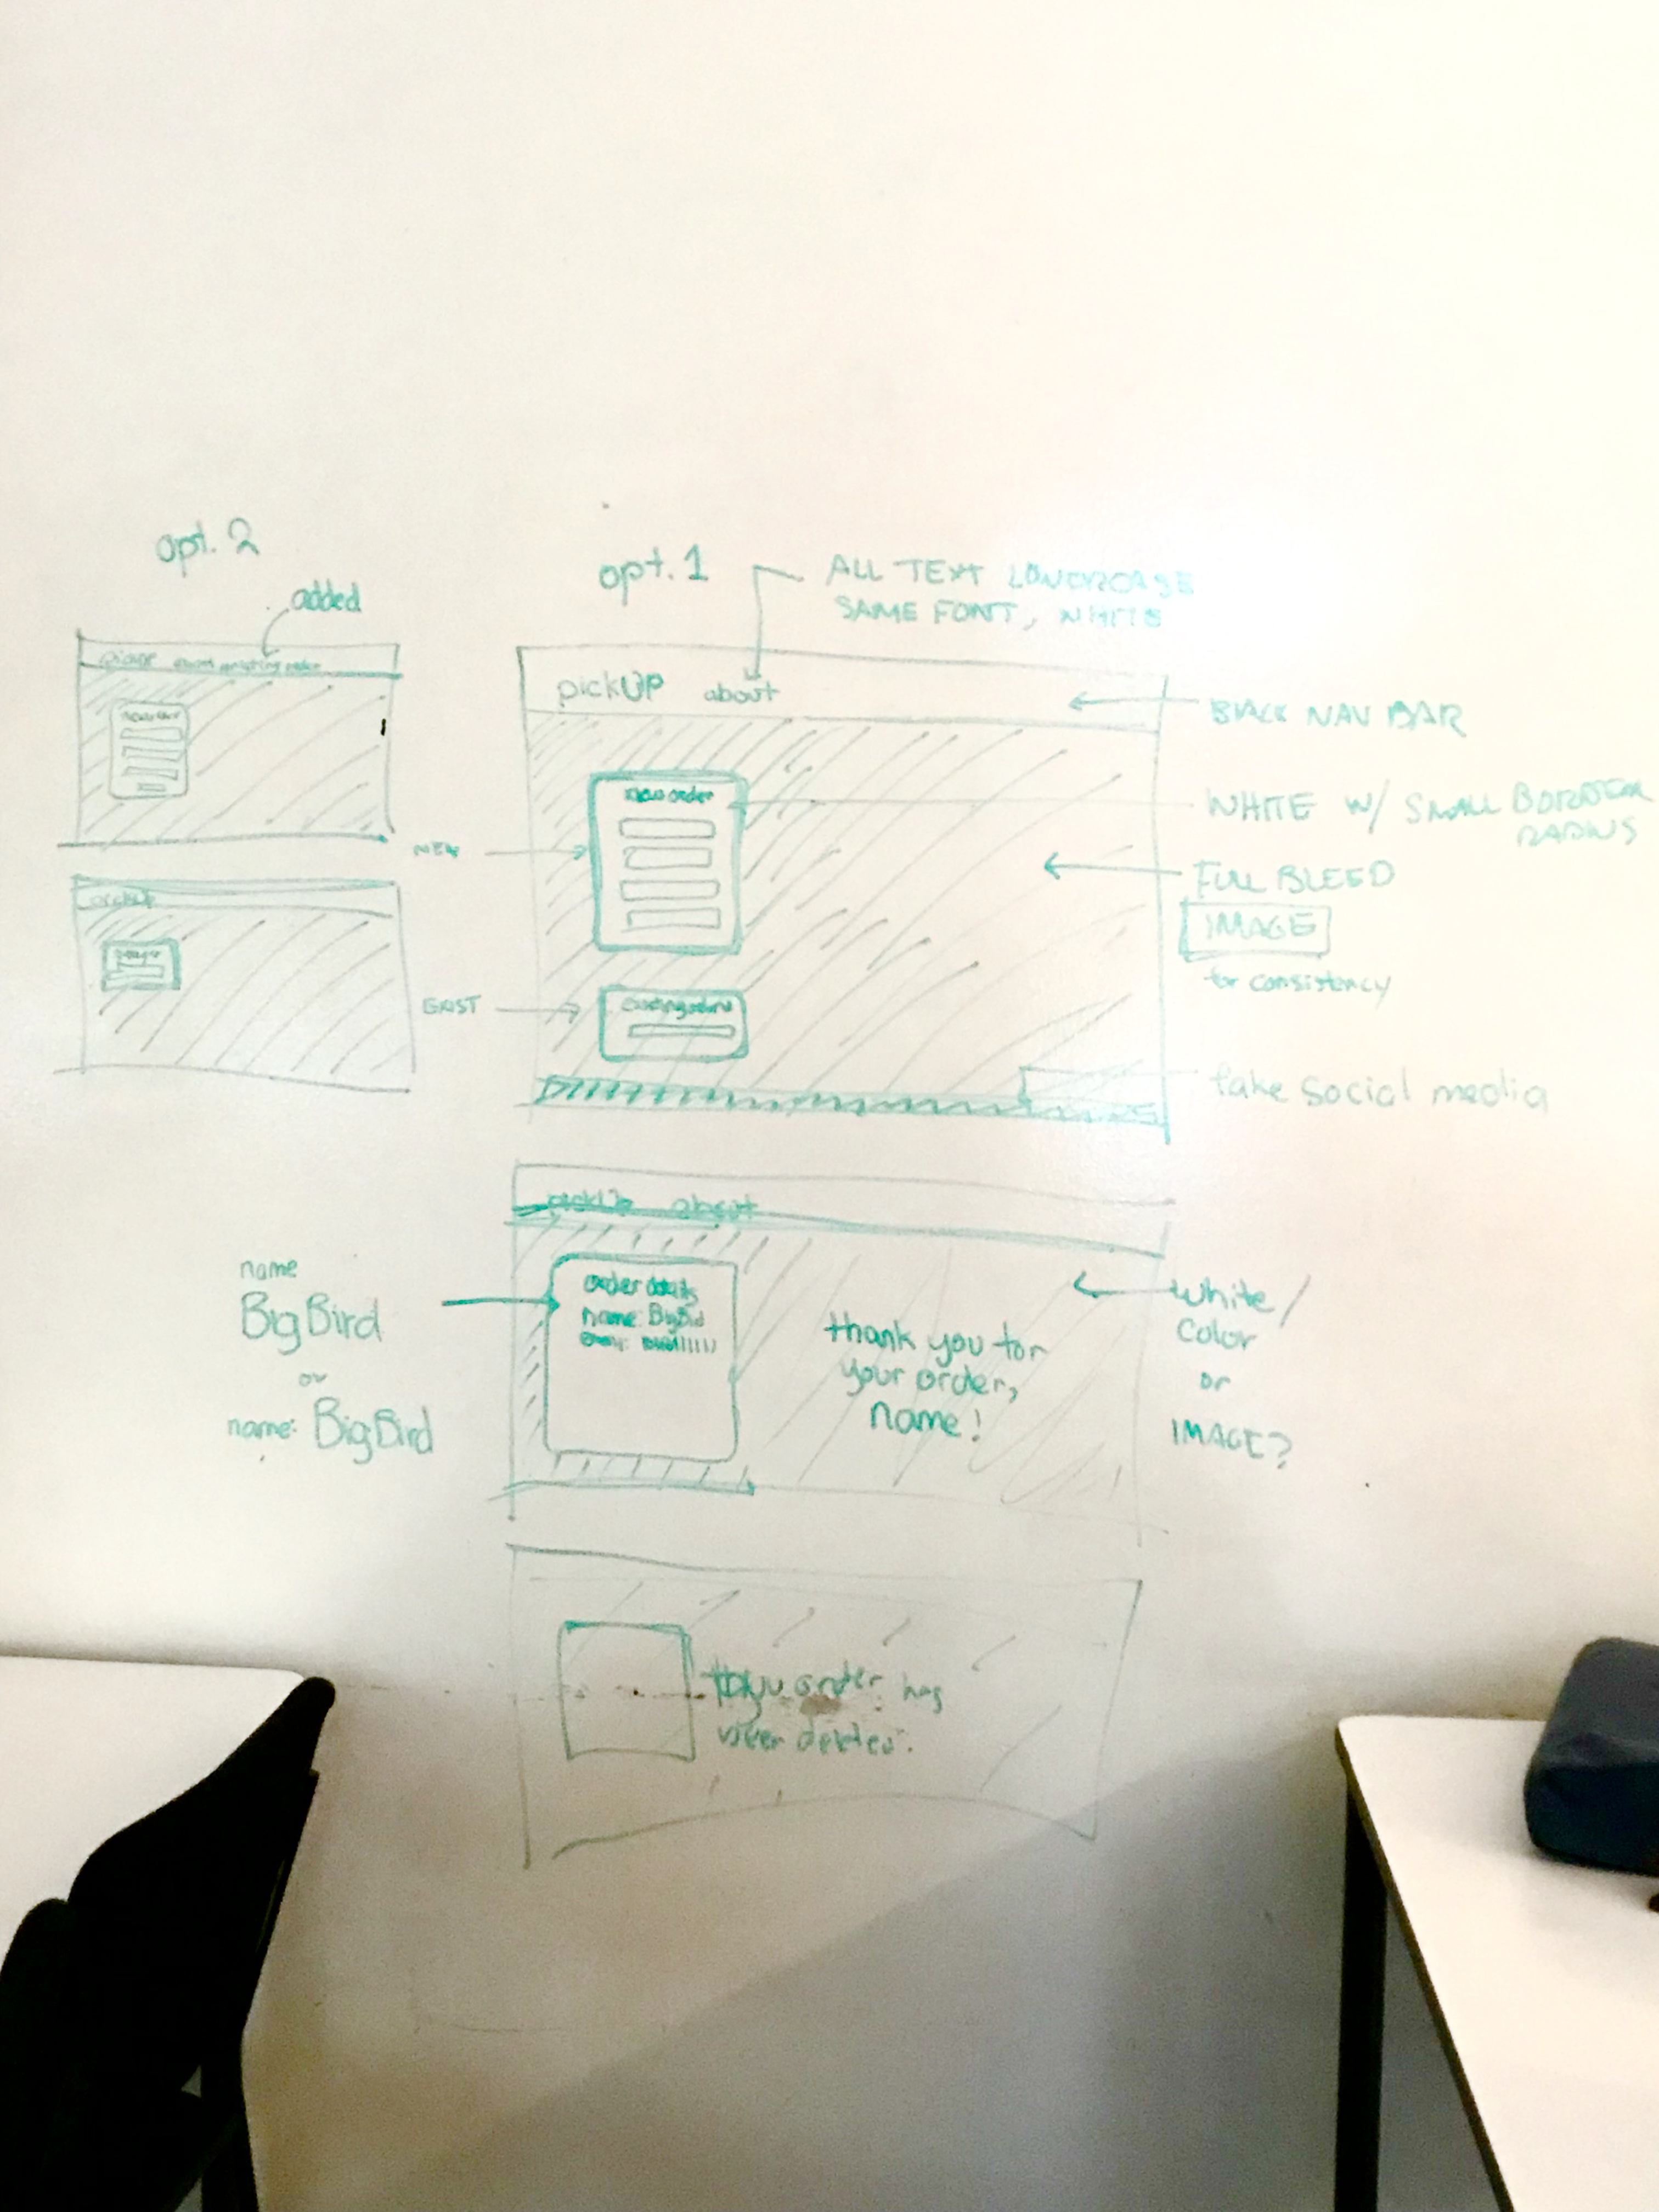 opt. 2
added
pickUP about existing order
new order
pickUp
opt. 1
ALL TEXT LOWERCASE
SAME FONT, WHITE
pickUP about
BLACK NAV BAR
new order
WHITE W/ SMALL BORDER
RADIUS
NEW
FULL BLEED
IMAGE
for consistency
EXIST
existing order
fake social media
pickUp about
name
BigBird
or
name: BigBird
order details
name: BigBird
email:
thank you for
your order,
name!
white/
color
or
IMAGE?
order has
been deleted.